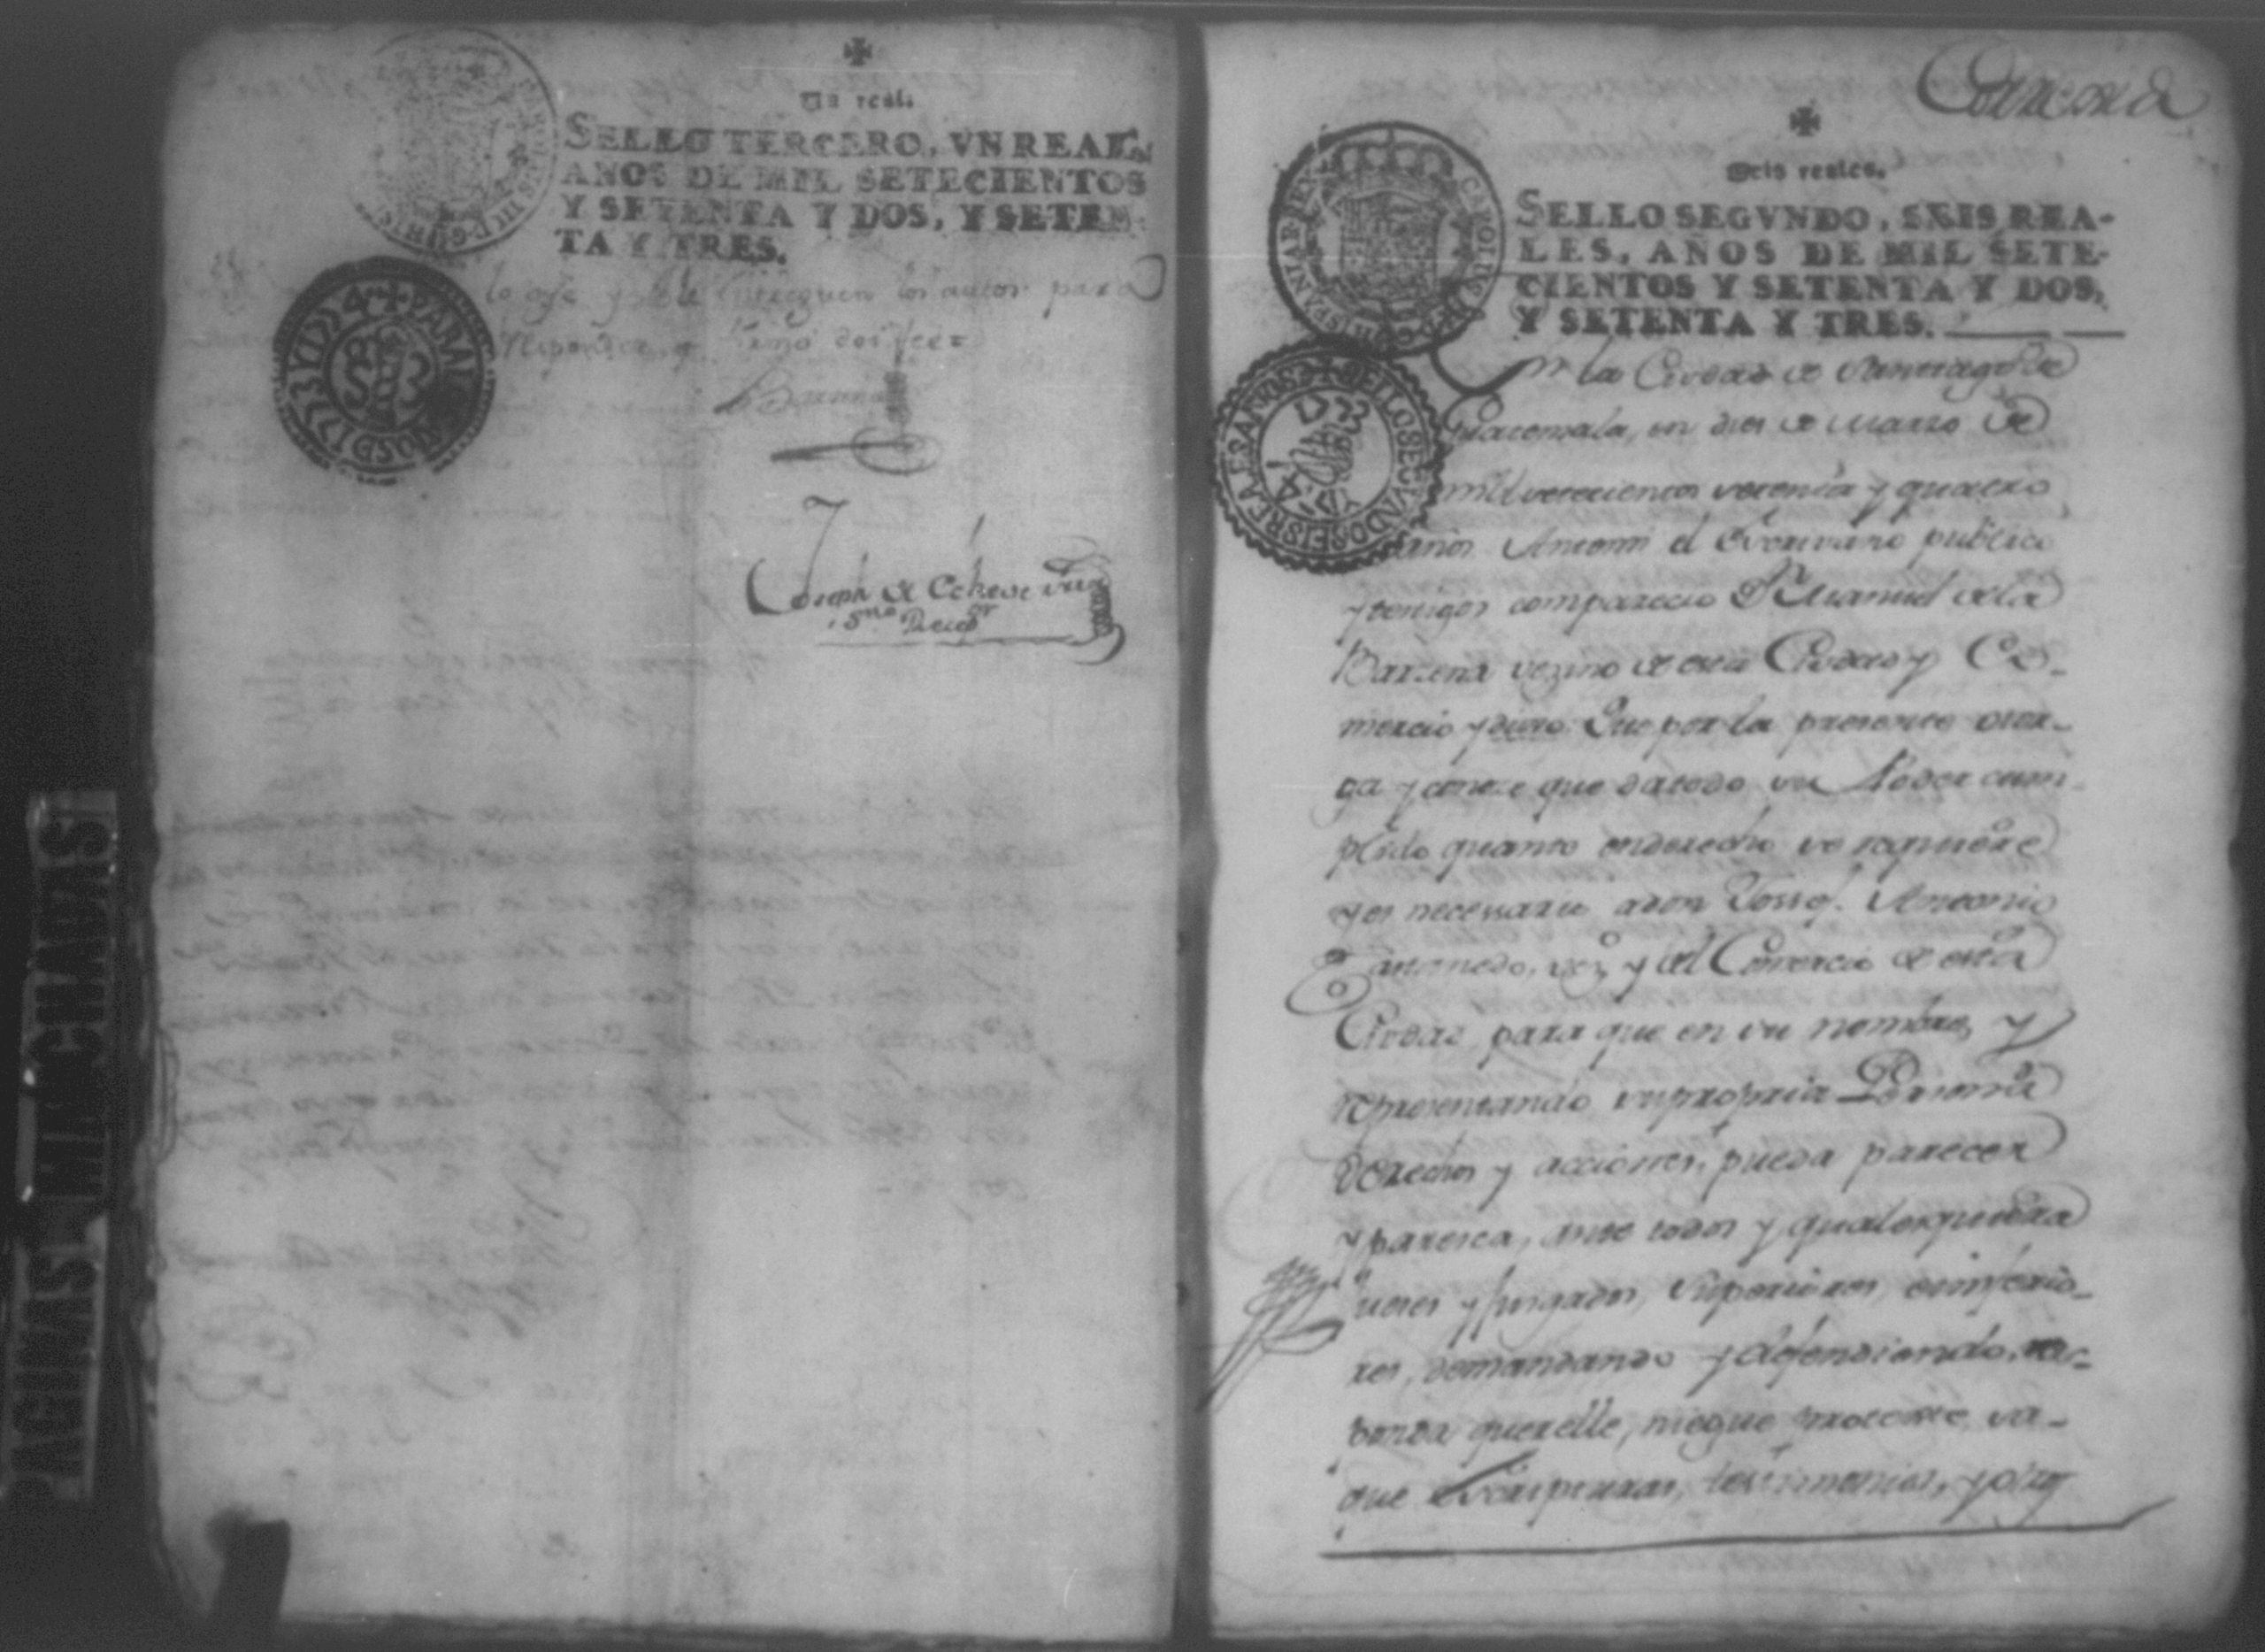 Un real.
SELLO TERCERO, VN REAL,
AÑOS DE MIL SETECIENTOS
Y SETENTA Y DOS, Y SETEN-
TA Y TRES.
CAROLUS III D. G. HISP
PARA LOS AÑOS D 1773 Y 1774
lo oye y se le entreguen los autos para
Barzena
Joseph de Echeverria
SSno Recepr
PAGINAS MANCHADAS
Seis reales.
SELLO SEGVNDO, SEIS REA-
LES, AÑOS DE MIL SETE-
CIENTOS Y SETENTA Y DOS,
Y SETENTA Y TRES.
CAROLUS III D G HISPANIAR REX
SELLO SECVNDO SEIS REALES AÑOS D 1773 Y 1774
En la Ciudad de Santiago de
Guatemala, en dies de Marzo de
mil setecientos setenta y quatro
años. Ante mi el Escrivano publico
y testigos comparecio Dn Manuel de la
Barzena vezino de esta Ciudad y Co-
mercio y dixo. Que por la presente otor-
ga y conoce que da todo su Poder cum-
plido quanto en derecho se requiere
y es necessario a don Jossef Antonio
Castanedo, vezo y del Comercio de esta
Ciudad, para que en su nombre, y
representando su propria Persona
derechos y acciones, pueda parecer
y paresca, ante todos y qualesquiera
Jueses y Jusgados, Superiores, e inferio-
res, demandando y defendiendo, res-
ponda querelle, niegue proteste, sa-
que Escripturas, testimonios, y otrs